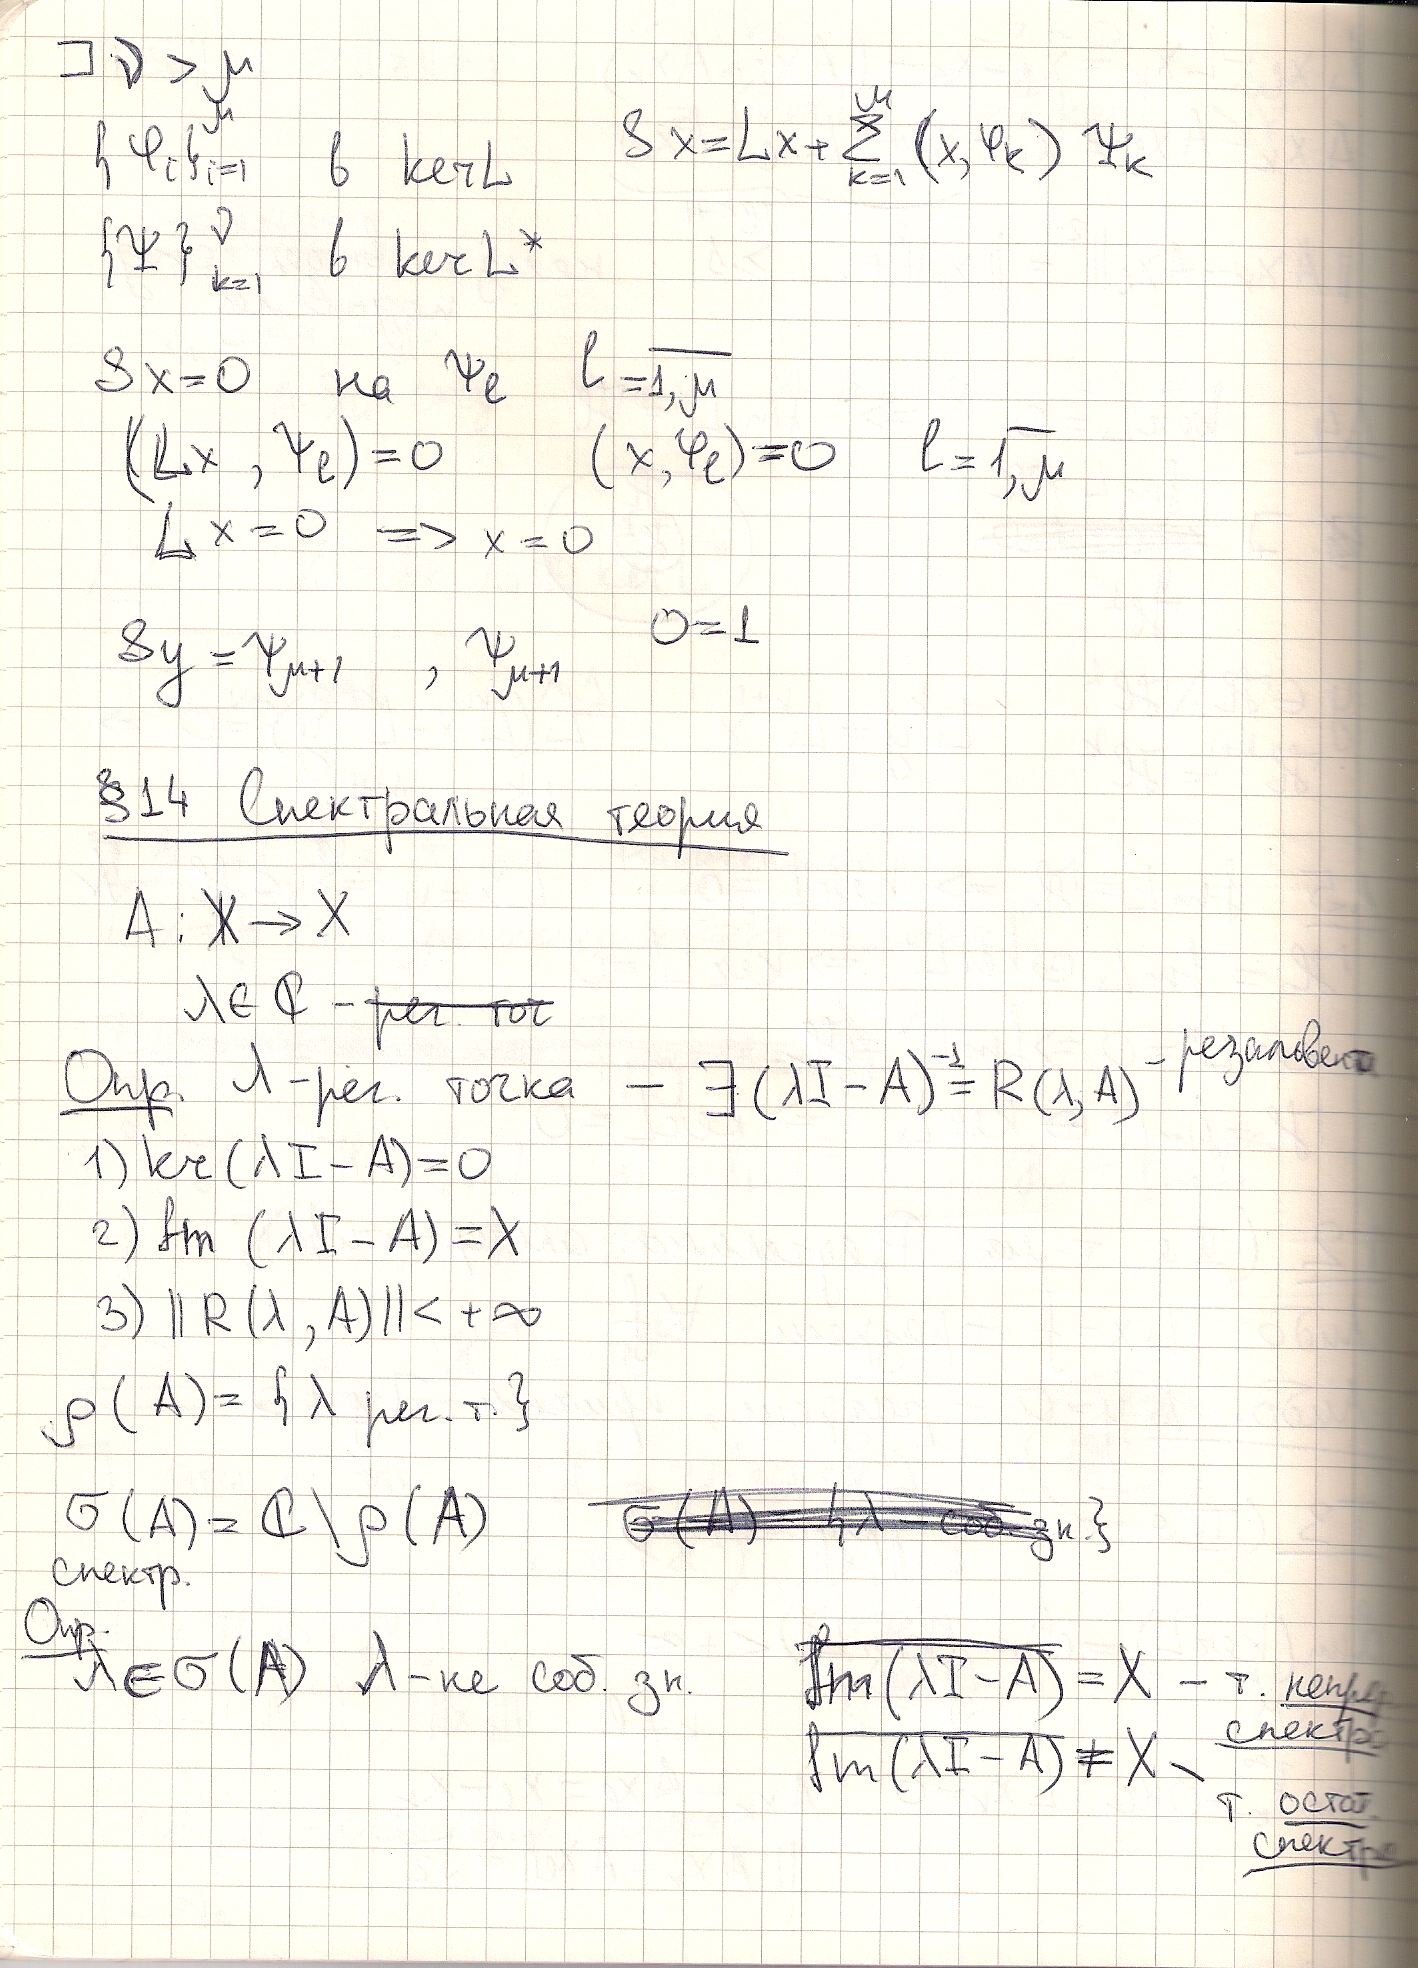 ∃ ν > μ
{φ_i}_{i=1}^μ в kerL Sx = Lx + Σ_{k=1}^μ (x, φ_k) Ψ_k
{Ψ}_{k=1}^ν в kerL*
Sx = 0 на Ψ_l l = \overline{1, μ}
(Lx, Ψ_l) = 0 (x, φ_l) = 0 l = \overline{1, μ}
Lx = 0 => x = 0
Sy = Ψ_{μ+1} , Ψ_{μ+1} 0 = 1
§14 Спектральная теория
A : X → X
λ ∈ ℂ - рег. точ
Опр. λ - рег. точка — ∃ (λI - A)^{-1} = R(λ, A) - резольвента
1) ker(λI - A) = 0
2) Im (λI - A) = X
3) ||R(λ, A)|| < +∞
ρ(A) = {λ рег. т.}
σ(A) = ℂ \ ρ(A) σ(A) = {λ - соб. зн.}
спектр.
Опр.
λ ∈ σ(A) λ - не соб. зн. \overline{Im(λI - A)} = X - т. непрер
спектра
\overline{Im(λI - A)} ≠ X - т. остат.
спектра